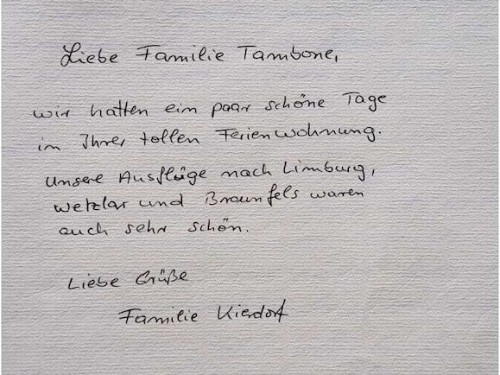 Liebe Familie Tambone,
wir hatten ein paar schöne Tage
in Ihrer tollen Ferienwohnung.
Unsere Ausflüge nach Limburg,
Wetzlar und Braunfels waren
auch sehr schön.
Liebe Grüße
Familie Kierdorf